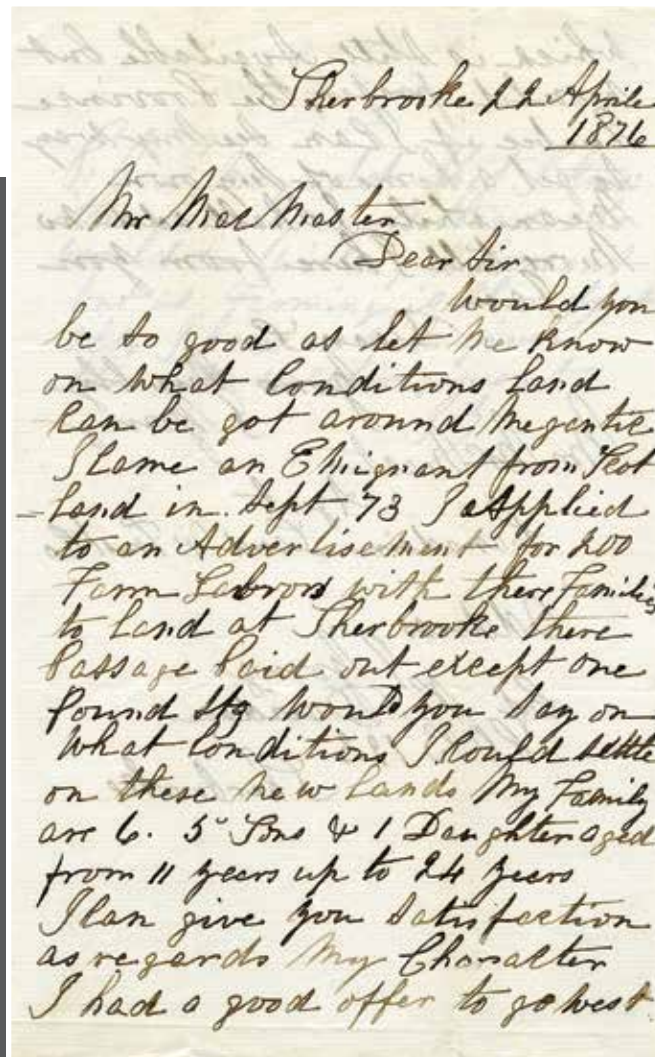 Sherbrooke 22 Aprile
1876
Mr MacMaster
Dear Sir
Would you
be so good as let me know
on what Conditions Land
Can be got around Megantic
I Came an Emigrant from Scot
-land in. Sept 73 I aApplied
to an Advertisement for 200
Farm Labrors with there Families
to Land at Sherbrooke there
Passage Paid out except one
Pound Stg Would you Say on
What Conditions I Could settle
on these new Lands My Family
are 6. 5 Sons & 1 Daughter aged
from 11 years up to 24 years
I Can give you Satisfaction
as regards My Character
I had a good offer to go West